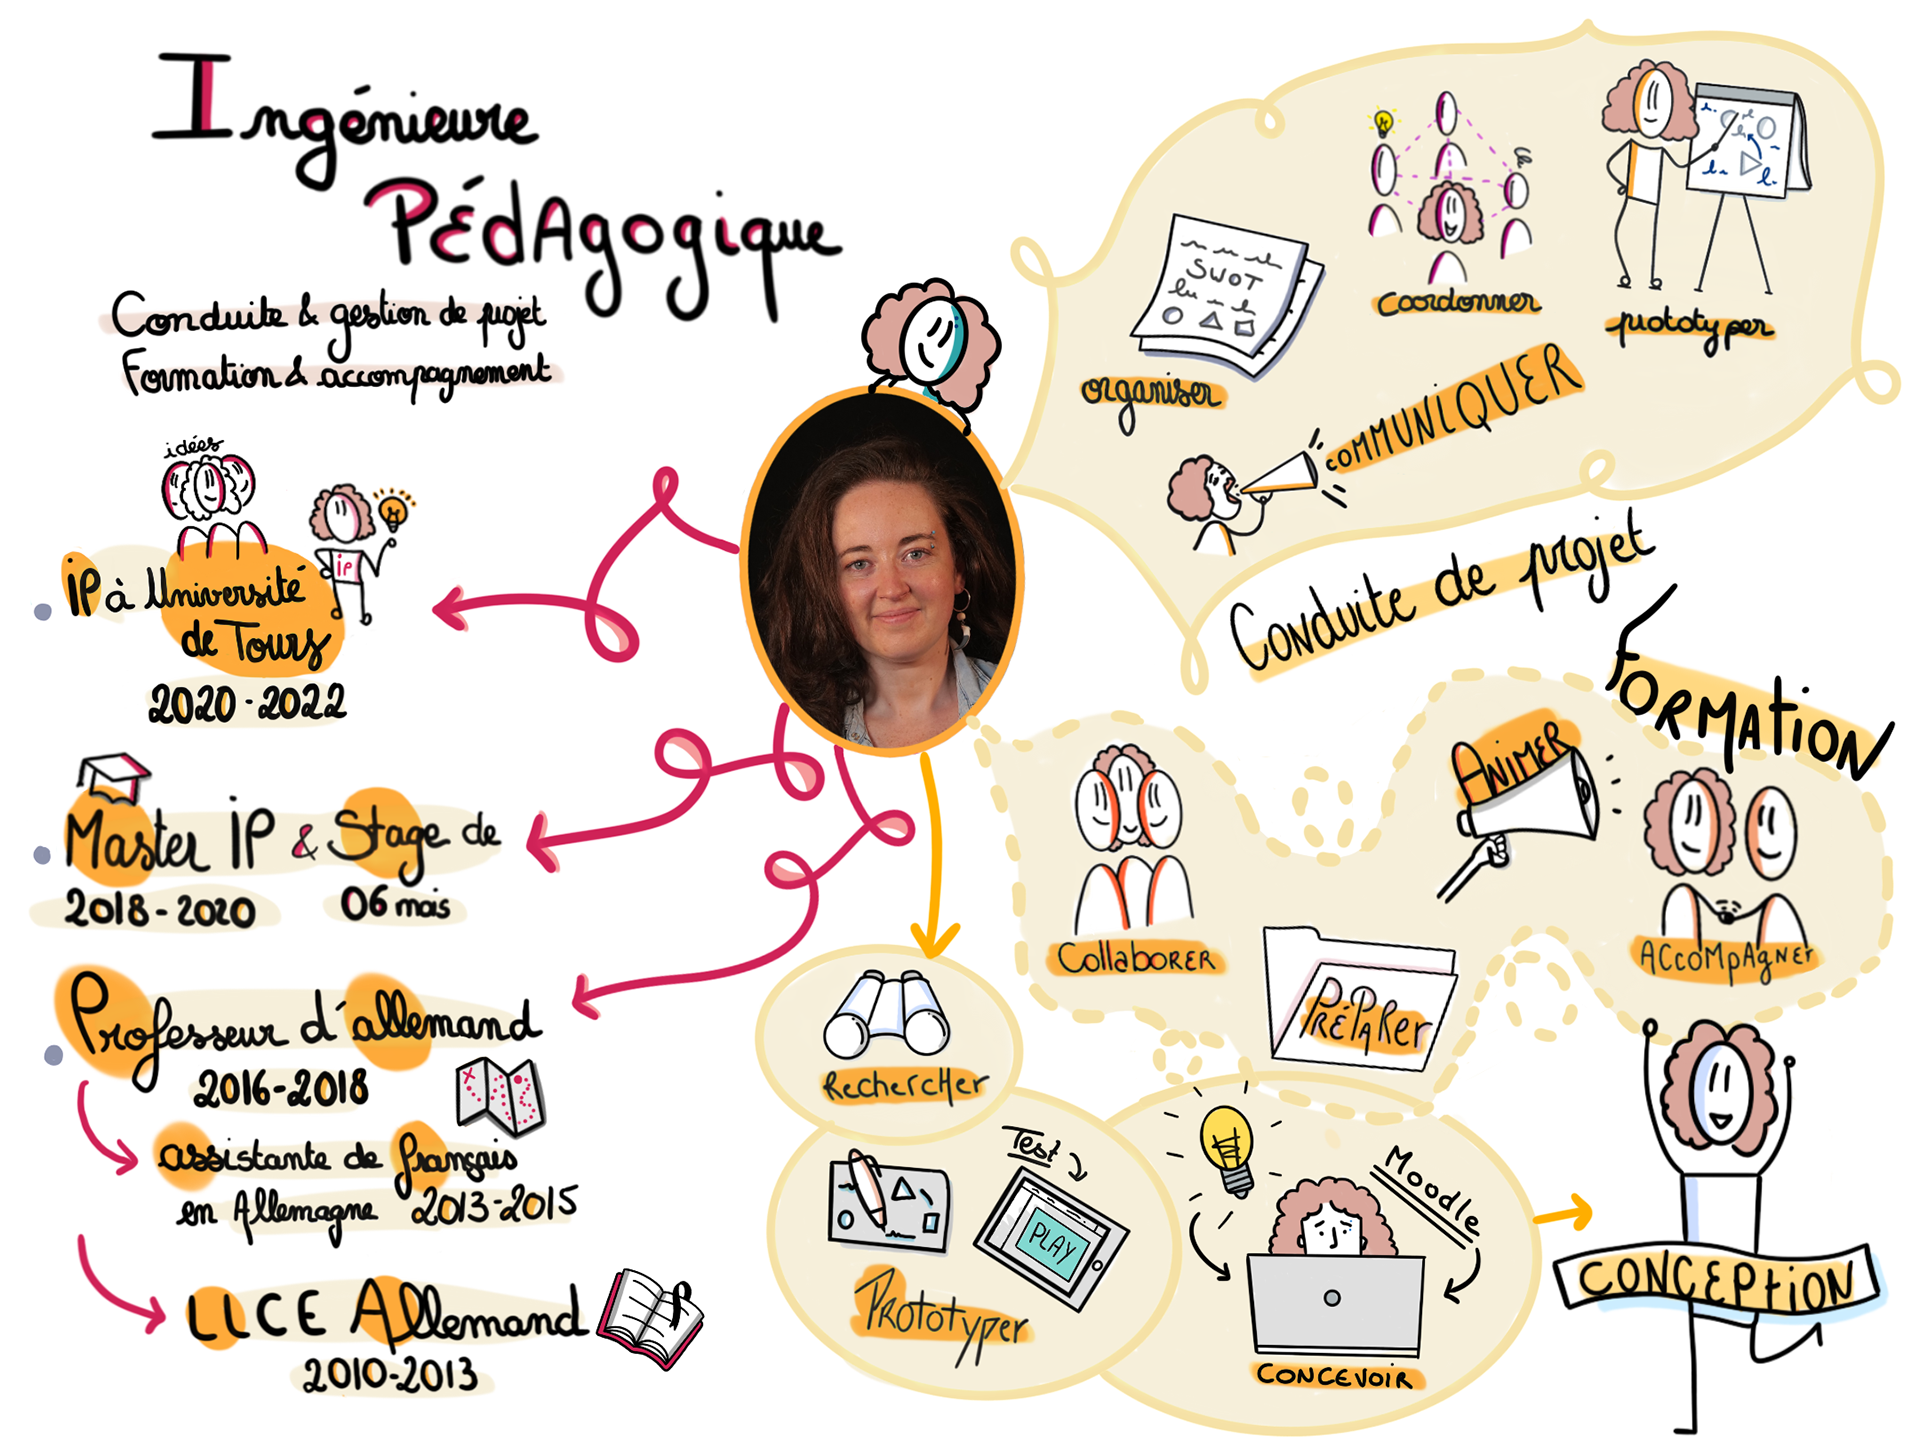 Ingénieure
PÉdAgogique
Conduite & gestion de projet
Formation & accompagnement
idées
iP
iP à Université
de Tours
2020-2022
Master iP & Stage de
2018-2020
06 mois
Professeur d'allemand
2016-2018
assistante de français
en Allemagne 2013-2015
LICE Allemand
2010-2013
SWOT
organiser
coordonner
prototyper
COMMUNIQUER
Conduite de projet
FORMATION
CollaboRER
ANIMER
ACCOMpAgNEr
PRÉPARer
RechercHer
Test
PLAY
PRototyper
Moodle
CONCEVOIR
CONCEPtiON